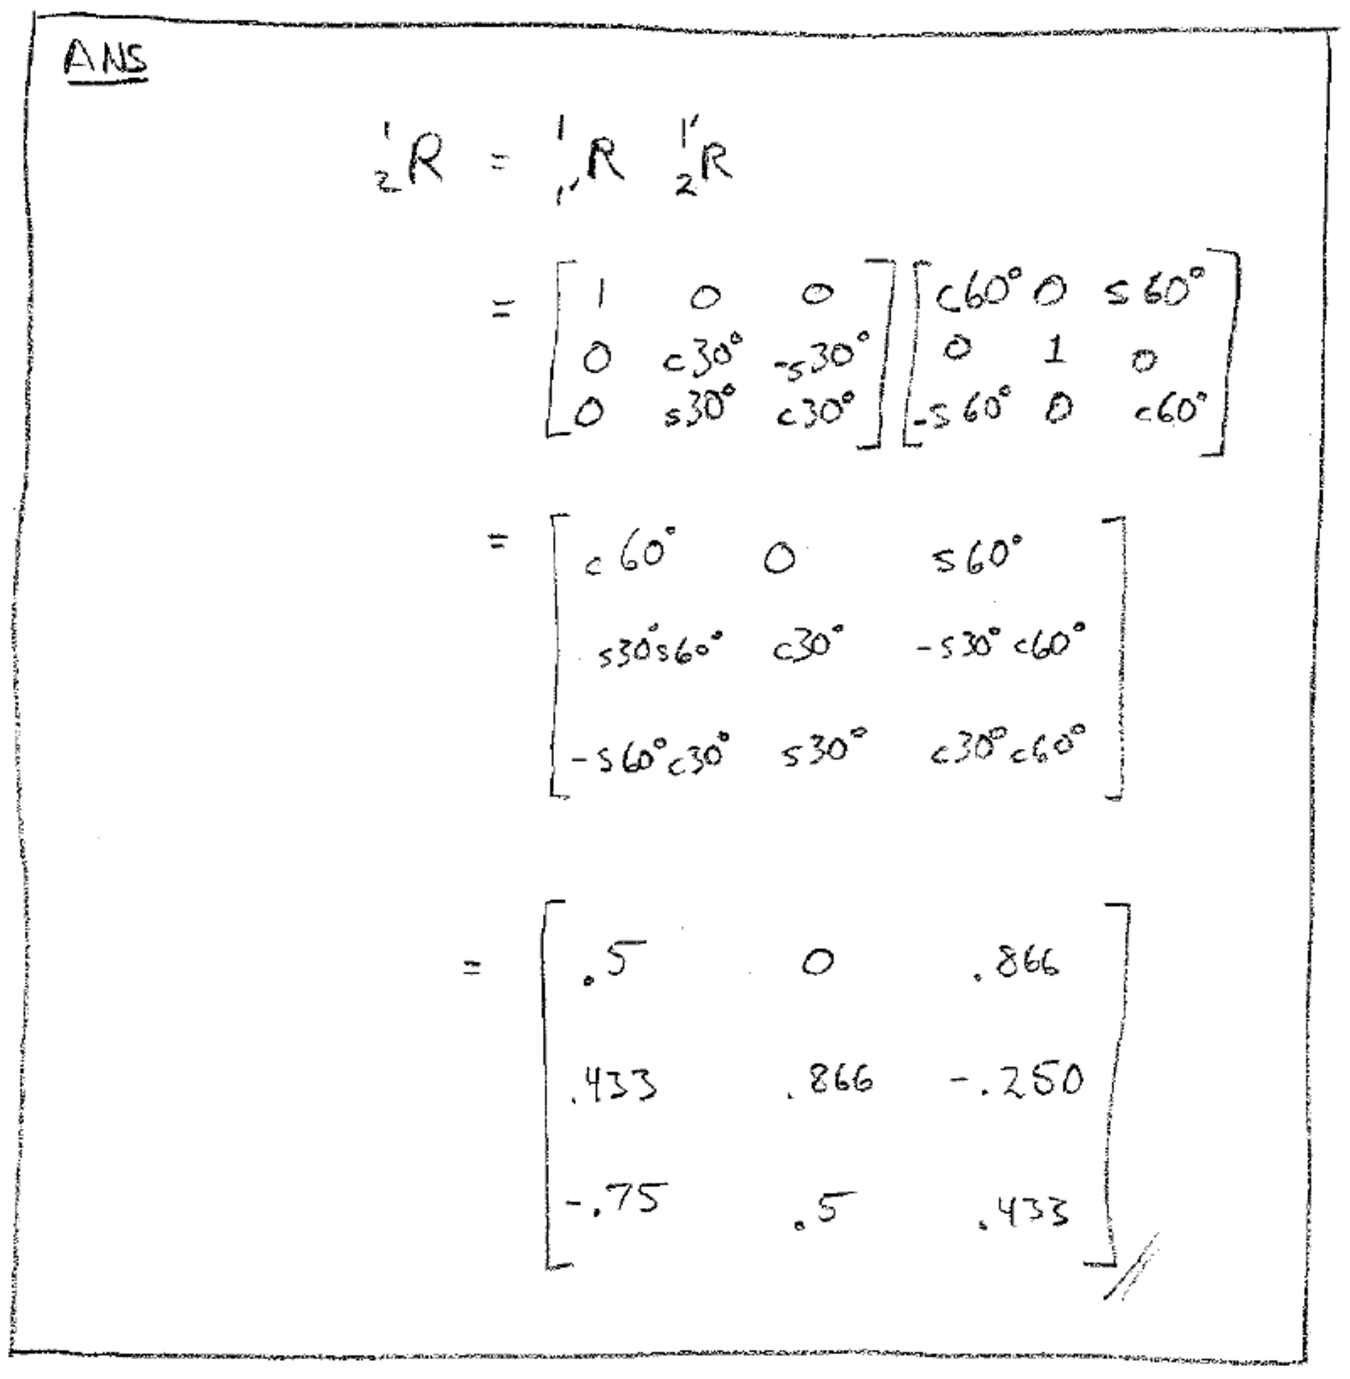 ANS
¹₂R = ¹₁'R ¹'₂R
= [ 1 0 0 ] [ c60° 0 s60° ]
[ 0 c30° -s30° ] [ 0 1 0 ]
[ 0 s30° c30° ] [ -s60° 0 c60° ]
= [ c60° 0 s60° ]
[ s30°s60° c30° -s30°c60° ]
[ -s60°c30° s30° c30°c60° ]
= [ .5 0 .866 ]
[ .433 .866 -.250 ]
[ -.75 .5 .433 ]